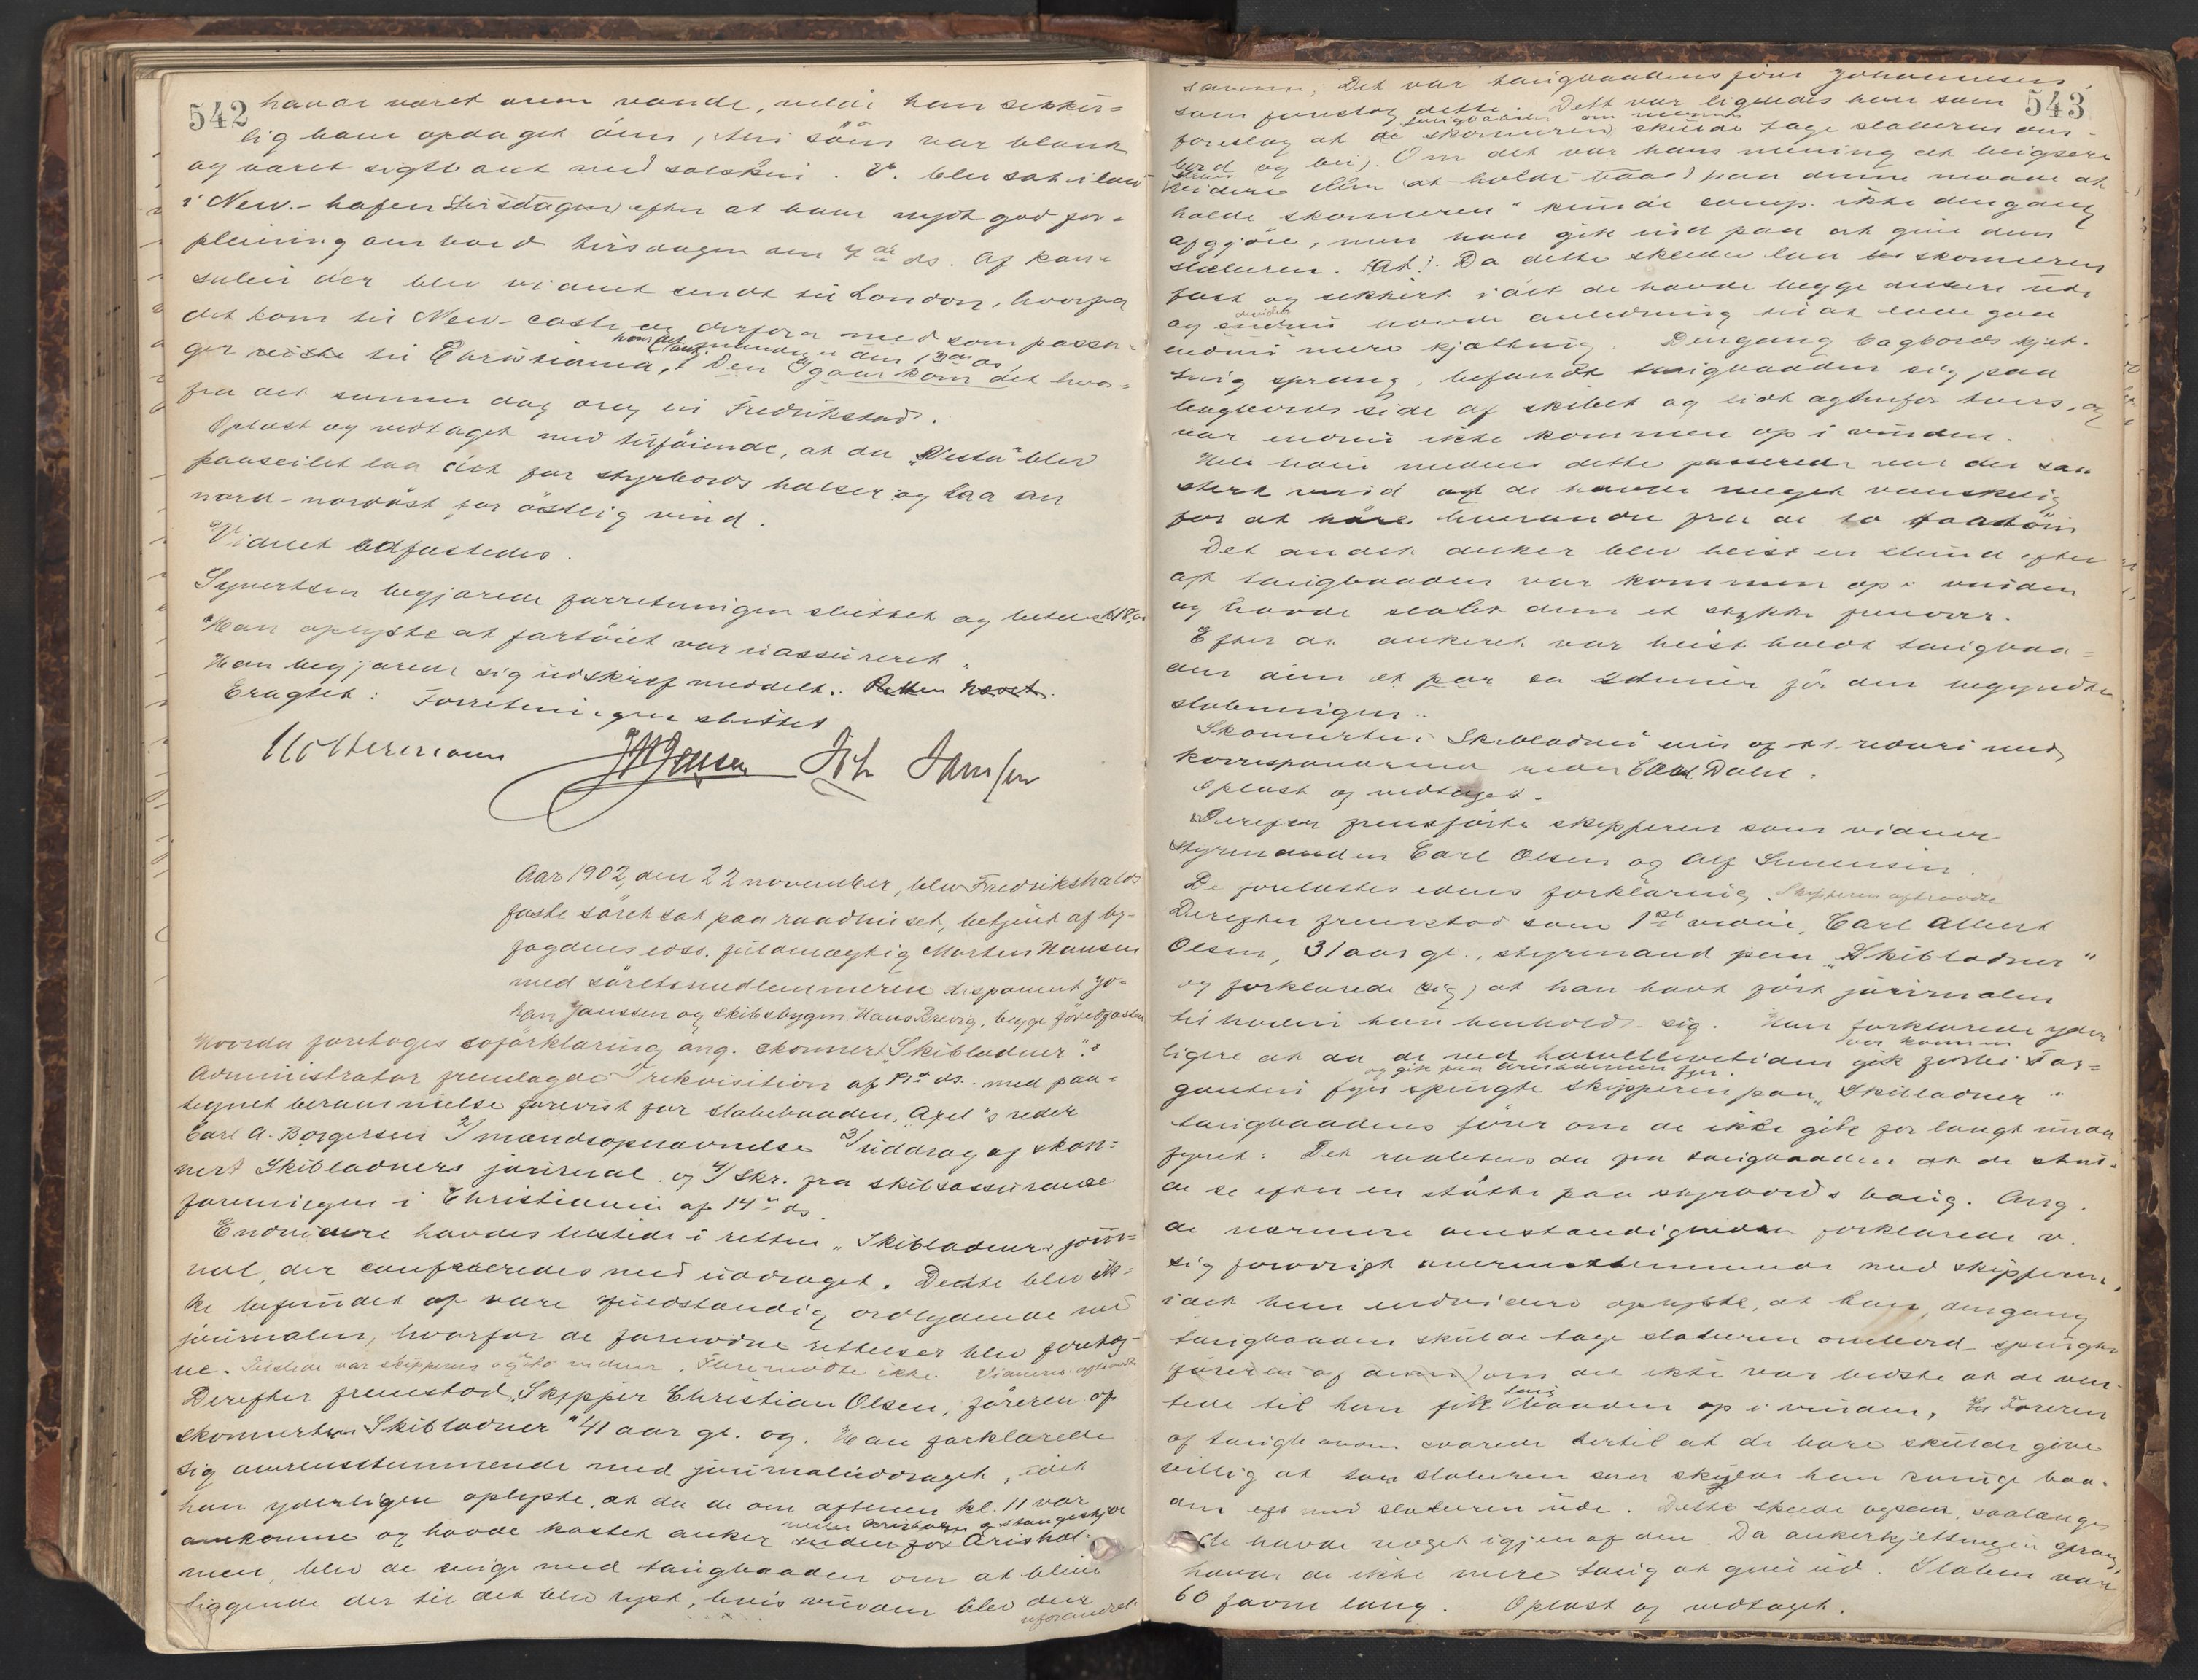 542
havde været oven vande, vilde han sikker=
lig have opdaget den, thi søen var blank
og været sigtbart med solskin. V. blev sat iland
i New-hafen tirsdagen efter at have nydt god for-
pleining ombord tirsdagen den 4de ds. Af kon-
sulen der blev vidnet sendt til London, hvorfra
det kom til New-castle og derfra med som passa-
ger reiste til Christiania, hvor det ank. mandag den 13de ds
Den Igaar kom det hvor=
fra det samme dag drog til Fredrikstad.
Oplæst og vedtaget med tilføiende, at da "Vesta" blev
paaseilet laa det for styrbords halser og laa an
nord-nordøst for østlig vind.
Vidnet edfæstedes.
Syvertsen begjærede forretningen sluttet og betalte kr 18,00
Han oplyste at fartøiet var uassureret.
Han begjærede sig udskrift meddelt. Retten hævet.
Eragtet: Forretningen sluttet
Holtermann JMJensen Joh Jansen
Aar 1902, den 22 november, blev Fredrikshalds
faste søret sat paa raadhuset, betjent af by-
fogdens edss. fuldmægtig Morten Hansen
med søretsmedlemmerne disponent Jo-
han Janssen og skibsbygm. Hans Brevig, begge før edfæstede
Hvorda foretoges søforklaring ang. skonnert "Skibladner".
Administrator fremlagde 1/ rekvisition af 13de ds. med paa-
tegnet berammelse forevist for slæbebaaden "Axel"s reder
Carl A. Børgersen 2/ mandsopnævnelse 3/ uddrag af skon=
nert Skibladners journal og 4/ skr. fra skibsassurance
foreningen i Christiania af 14de ds.
Endvidere havdes tilstede i retten "Skibladners" jour=
nal, der confereredes med uddraget. Dette blev ik-
ke befundet at være fuldstændig ordlydende med
journalen, hvorfor de fornødne rettelser blev foretag-
ne. Tilstede var skipperen og to vidner. Flere mødte ikke. Vidnerne aftraadte
Derefter fremstod Skipper Christian Olsen, føreren af
skonnerten "Skibladner" 41 aar gl. og. Han forklarede
sig overensstemmende med journaluddraget, idet
han yderligere oplyste, at da de om aftenen kl. 11 var
ankomne og havde kastet anker mellem Arisholmen og Stangeskjær
nedenfor Arishol-
men, blev de enige med taugbaaden om at blive
liggende der til det blev lyst, hvis vinden blev den
uforandret
543
samme; Det var taugbaadens fører Johannesen,
som foreslog dette. Dett var ligeledes han som
taugbaaden om natten
foreslog at de skonneren skulde tage slæberen om-
bord og bli). Om det var hans mening at bugsere
videre eller at holde baad) paa denne maade at
holde skonneren kunde comp. ikke dengang
afgjøre, men han gik ind paa at give dem
slæberen. (At). Da dette skede laa skonneren
fast og sikkert idet de havde begge ankere ude
og endnu havde anledning til at lade gaa
endnu mere kjætting. Dengang bagbords kjæt-
ting sprang, befandt taugbaaden sig paa
bagbords side af skibet og lidt agtenfor tvers, og
var endnu ikke kommen op i vinden.
Hele tiden medens dette passerede var der saa
sterk vind at de havde meget vanskelig
for at høre hverandre fra de to fartøier
Det andet anker blev heist en stund efter
at taugbaaden var kommen op i vinden
og havde slæbet dem et stykke fremover.
Efter at ankeret var heist holdt taugbaa=
den dem et par sekunder før den begyndte
slæbningen.
Skonnerten Skibladner eies af et rederi med
korresponderende reder Carl Dahl.
Oplæst og vedtaget.
Derefter fremførte skipperen som vidner
Styrmanden Carl Olsen og Alf Simensen.
De forelæstes edens forklaring. Skipperen aftraadte
Derefter fremstod som 1ste vidne, Carl Albert
Olsen, 31 aar gl., styrmand paa "Skibladner"
og forklarede (sig) at han havt ført journalen
til hvilken han henholdt sig. Han forklarede yder
ligere at da de ved halvellevetiden var kommen gik forbi Tor=
og gik paa Arisholmen fyr
gauten fyr spurgte skipperen paa "Skibladner"
taugbaadens fører om de ikke gik for langt under
fyret: Det raabtes da fra taugbaaden at de skul-
de se efter en støtte paa styrbords boug. Ang.
de nærmere omstændigheder forklarede v.
sig forøvrigt overensstemmende med skipperen,
idet han endvidere oplyste, at han, dengang
taugbaaden skulde tage slæberen ombord spurgte
føreren af denne om det ikke var bedste at de ven-
tede til han fik taugbaaden op i vinden. Føreren
af taugbaaden svarede dertil at de bare skulde give
villig at slæberen saa skulde han svinge baa-
den op med slæberen ude. Dette skede ogsaa, saalænge
de havde noget igjen af den. Da ankerkjettingen sprang
havde de ikke mere taug at give ud. Slæberen var
60 favne lang. Oplæst og vedtaget.